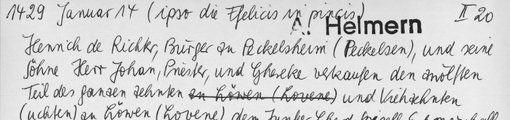 1429 Januar 14 (ipso die Felicis in pincis) A.. Helmern II 20
Henrich de Richter, Bürger zu Peckelsheim (Peckelsen), und seine
Söhne Herr Johan, Priester, und Ghereke verkaufen den zwölften
Teil des ganzen Zehnten zu Löwen (Lovene) und Viehzehnten
(uchten) zu Löwen (Lovene) dem Junker